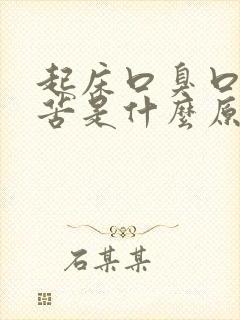 起床口臭口
苦是什麼原
石某某